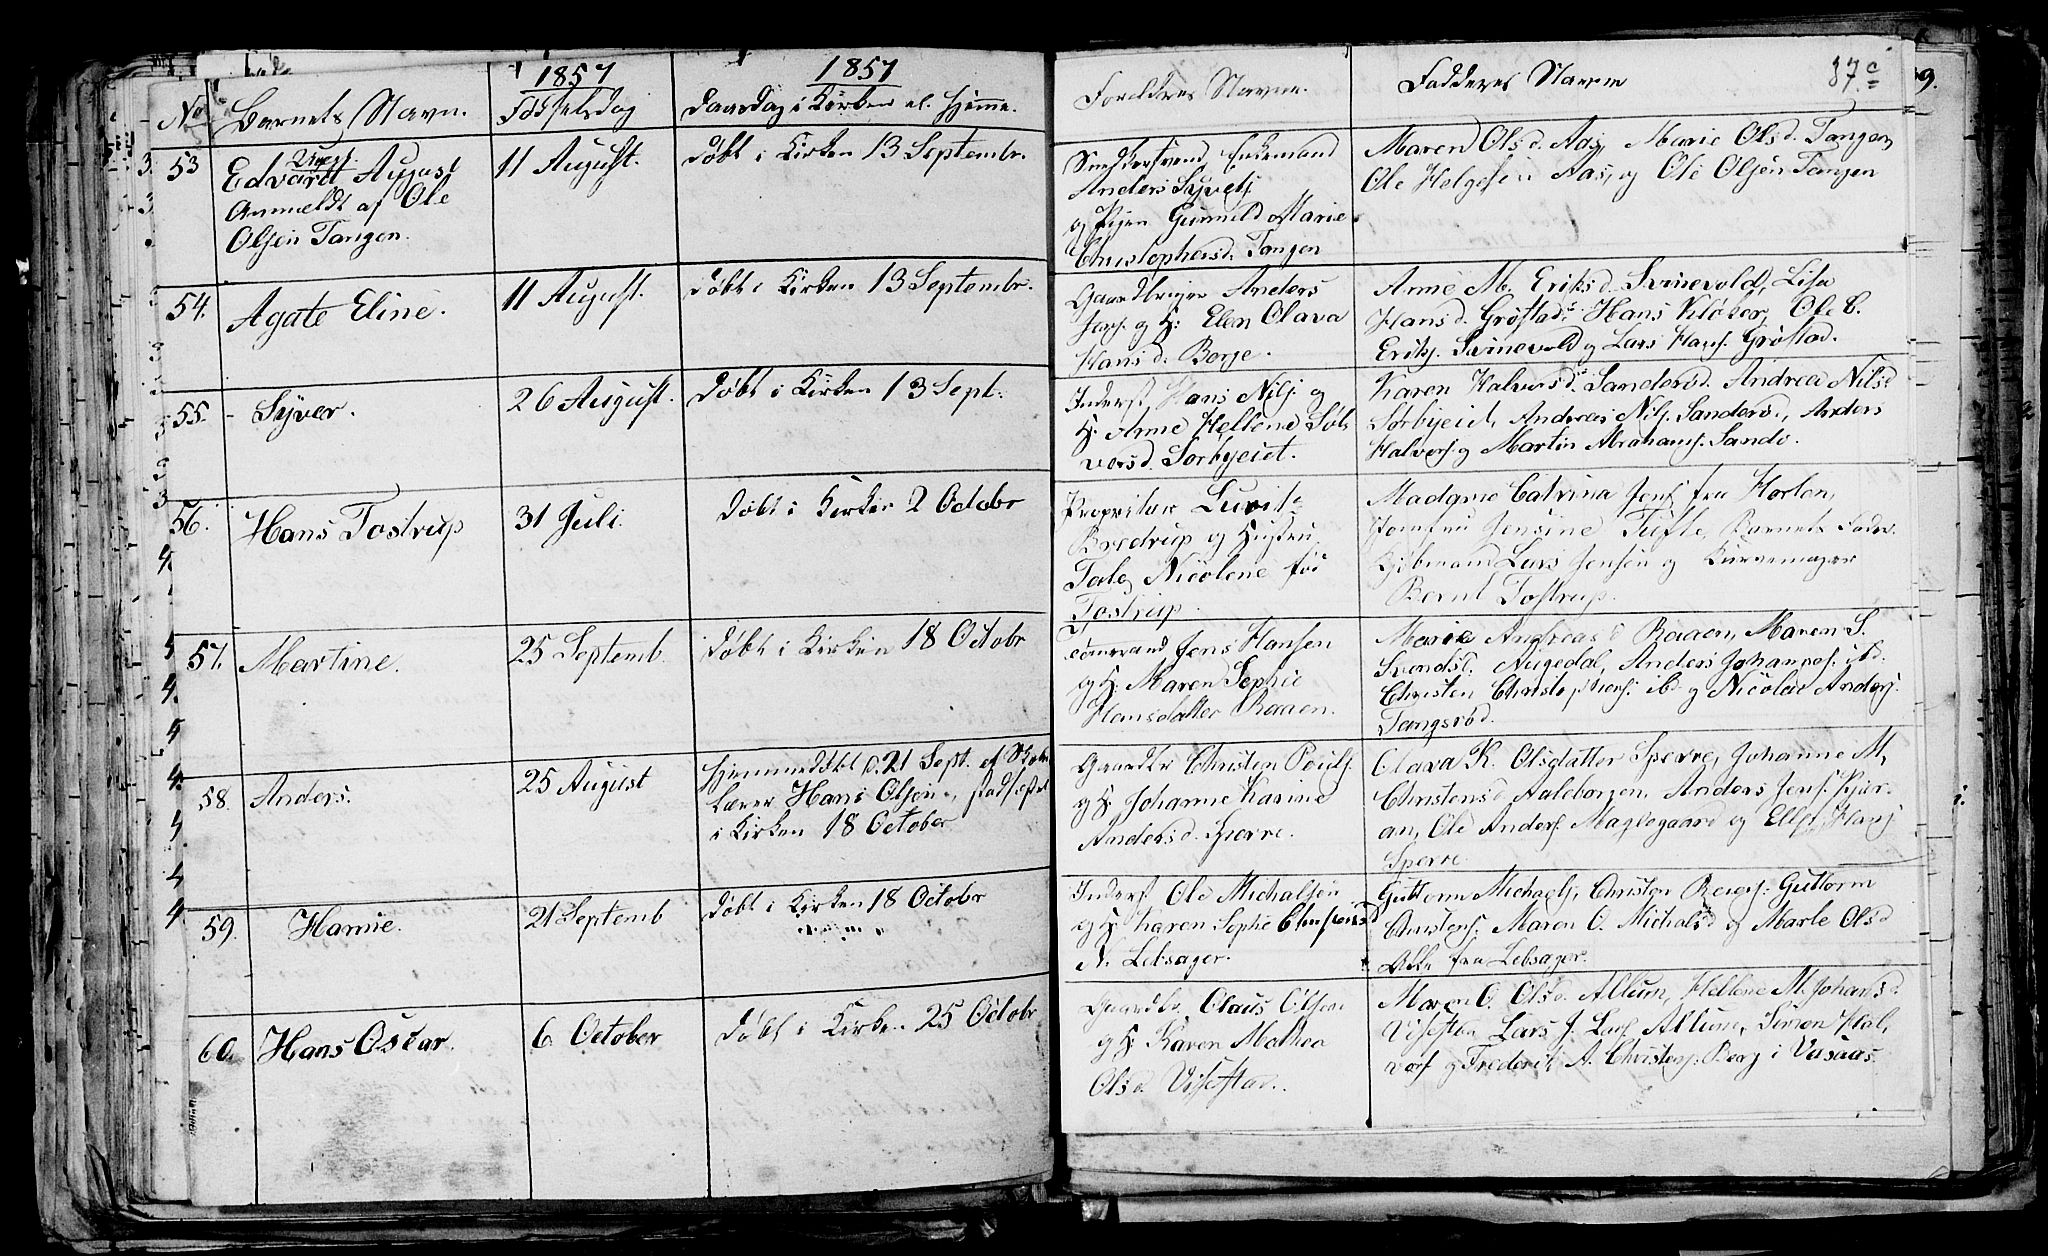 1857
1857
No
Barnets Navn.
Fødselsdag
Daasdag i Kirken el. Hjemme.
Forældres Navne.
Fadderes Navne
87c
53
Uægt.
Edvardt August
Anmeldt af Ole
Olsen Tangen.
11 August.
døbt i Kirken 13 Septembr.
Enkemand
Anders Syvels
og Pigen Gunnild Marie
Christophersd. Tangen
Maren Olsd. Aas, Marie Olsd. Tangen,
Ole Helgesen Aas, og Ole Olsen Tangen
54.
Agate Eline.
11 August.
døbt i Kirken 13 Septembr.
Gaardbruger Anders
og H: Elen Olava
Hansd. Borge.
Anne M. Eriksd. Svinevold, Lisa
Hansd. Grøstad, Hans Kløker, Ole C.
Eriks. Svinevold og Lars Hans. Grøstad.
55.
Syver.
26 August.
døbt i Kirken 13 Sept.
Inderst Hans Nils. og
H. Anne Hellene Søl
versd. Sørbyeiet.
Karen Halvorsd. Sanderød. Andrea Nilsd
Sørbyeiet, Andreas Nils. Sanderød, Anders
Halvors. og Martin Abrahams. Sande.
56.
Hans Tostrup
31 Juli.
døbt i Kirken 2 Octobr
Propritær
Bredrup og Hustru
Tale Nicolene fød
Tostrup.
Madame Catrina Jens. fra Horten,
Jomfru Jensine Tufte, Barnets Fader
Kjøbmand Lars Jensen og
Bernt Tostrup.
57.
Martine.
25 Septemb.
døbt i Kirken 18 Octobr
Jens Hansen
og H. Maren Sophie
Hansdatter Raaen.
Marie Andreasd Raaen, Maren S.
Svendsd. Augedal, Anders Johannes. ibd.
Christen Christophers. ibd. og Nicolai Anders.
Tangsrød.
58.
Anders.
25 August
Hjemmedøbt d. 21 Sept. af Skole
Lærer Hans Olsen, stadfæstet
i Kirken 18 October
Gaardbr Christen Pouls.
og H Johanne Karine
Andersd. Sperre.
Olava K. Olsdatter Sperre, Johanne M,
Christensd Aaleborgen, Anders Jens.
an, Ole Anders. Magløgaard og Ellef Hans
Sperre
59.
Hanne.
21 Septemb
døbt i Kirken 18 Octobr
Inderst Ole Michalsen
og H Karen Sophie Christensd
N. Lebsager.
Guttorm Michaels, Christen Guttorm
Christens. Maren O. Michalsd og Marte Olsd
Alle fra Lebsager.
60.
Hans Oscar.
6 October
døbt i Kirken 25 Octobr
Gaardbr. Olaus Olsen
og H Karen Mathea
Olsd
Maren O. Olsd. Allum, Hellene M. Johansd.
Lars J. Allum, Simon Hal,
vors og Frederik A. Christens. Berg i Vasaas